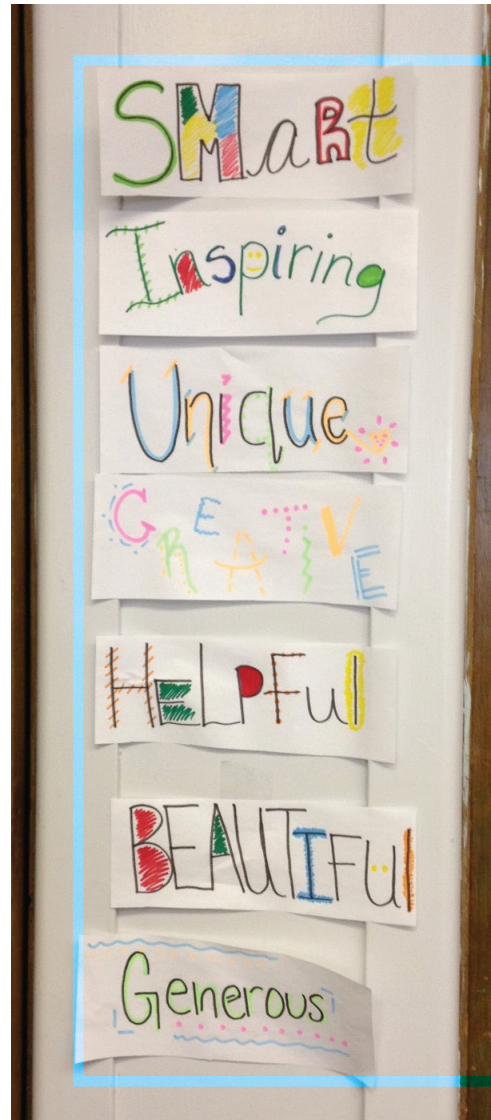 SMaRt
Inspiring
Unique
CREATIVE
HELPFul
BEAUTIFul
Generous